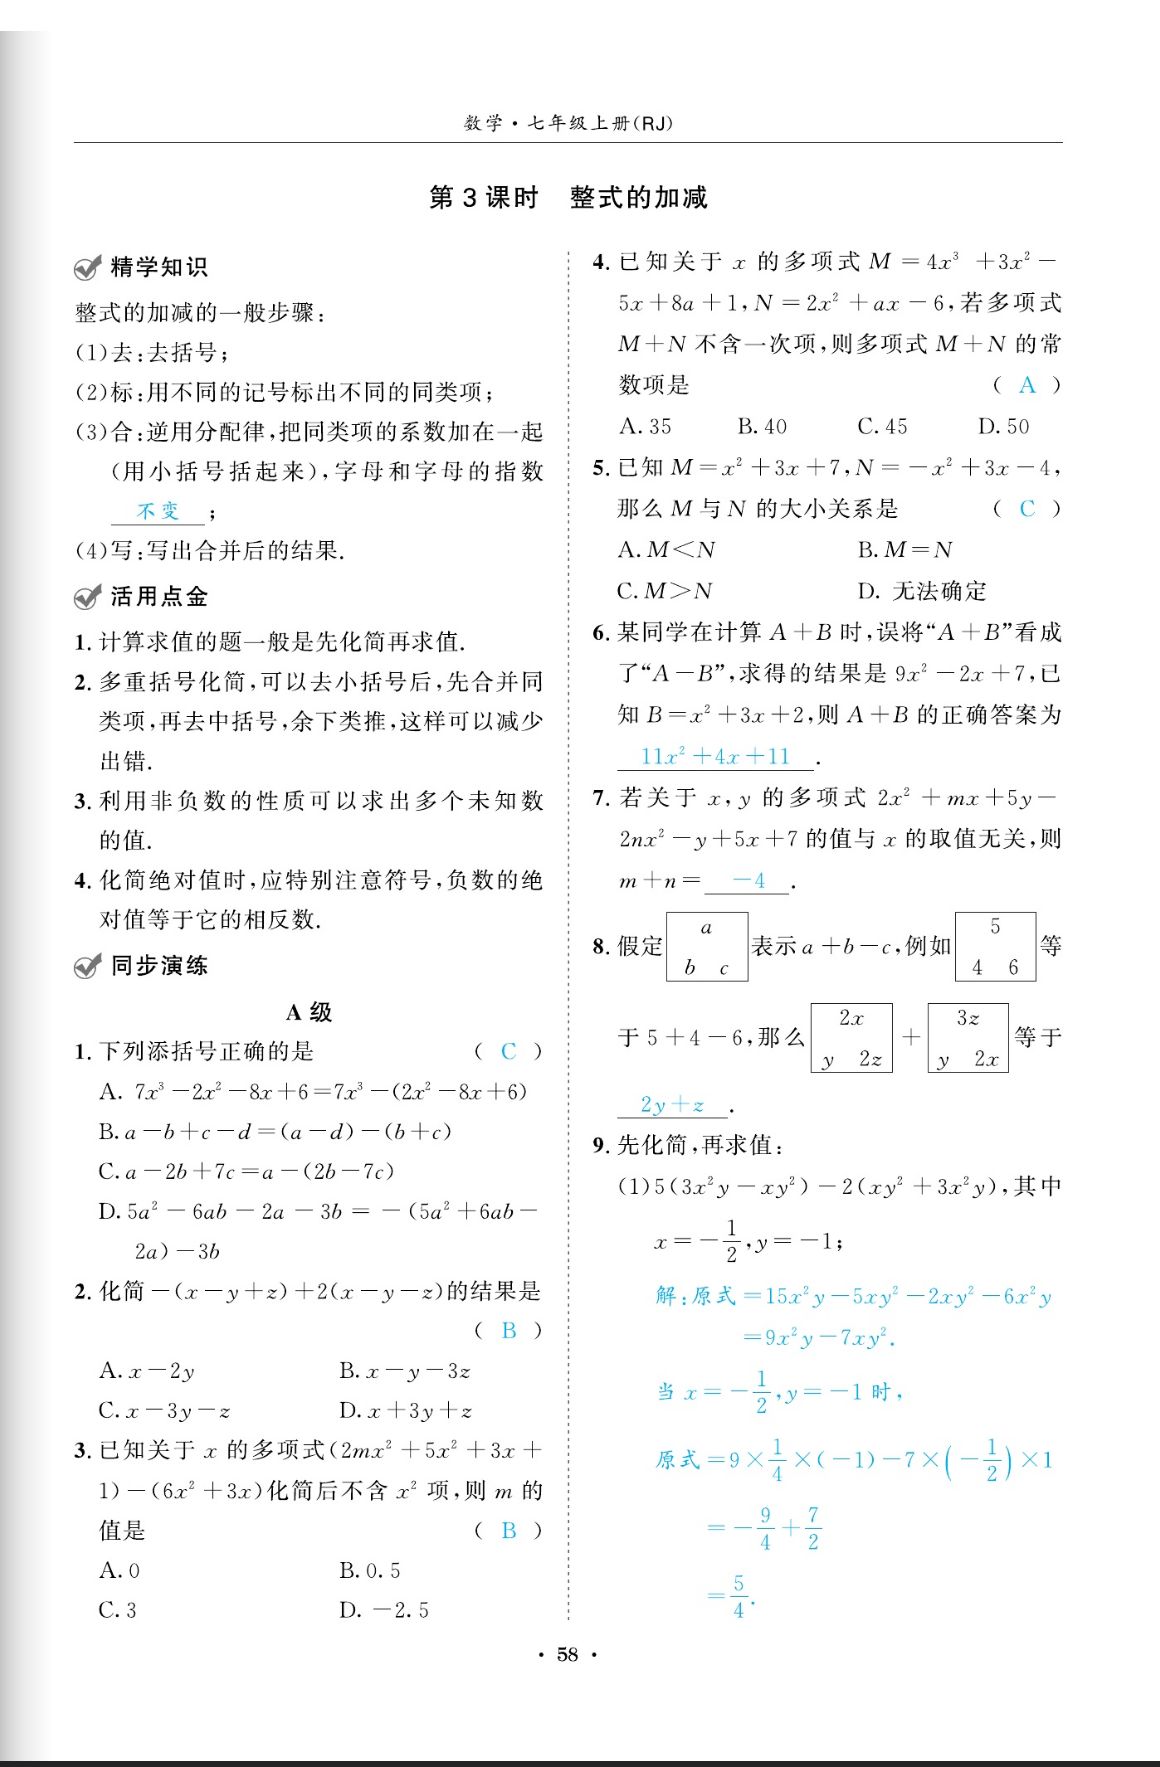 数学·七年级上册(RJ)
第3课时 整式的加减
精学知识
整式的加减的一般步骤:
(1)去:去括号;
(2)标:用不同的记号标出不同的同类项;
(3)合:逆用分配律,把同类项的系数加在一起
(用小括号括起来),字母和字母的指数
不变;
(4)写:写出合并后的结果.
活用点金
1.计算求值的题一般是先化简再求值.
2.多重括号化简,可以去小括号后,先合并同
类项,再去中括号,余下类推,这样可以减少
出错.
3.利用非负数的性质可以求出多个未知数
的值.
4.化简绝对值时,应特别注意符号,负数的绝
对值等于它的相反数.
同步演练
A级
1.下列添括号正确的是 ( C )
A. 7x³-2x²-8x+6=7x³-(2x²-8x+6)
B. a-b+c-d=(a-d)-(b+c)
C. a-2b+7c=a-(2b-7c)
D. 5a²-6ab-2a-3b=-(5a²+6ab-
2a)-3b
2.化简-(x-y+z)+2(x-y-z)的结果是
( B )
A. x-2y B. x-y-3z
C. x-3y-z D. x+3y+z
3.已知关于x的多项式(2mx²+5x²+3x+
1)-(6x²+3x)化简后不含x²项,则m的
值是 ( B )
A. 0 B. 0.5
C. 3 D. -2.5
4.已知关于x的多项式M=4x³+3x²-
5x+8a+1,N=2x²+ax-6,若多项式
M+N不含一次项,则多项式M+N的常
数项是 ( A )
A. 35 B. 40 C. 45 D. 50
5.已知M=x²+3x+7,N=-x²+3x-4,
那么M与N的大小关系是 ( C )
A. M<N B. M=N
C. M>N D. 无法确定
6.某同学在计算A+B时,误将“A+B”看成
了“A-B”,求得的结果是9x²-2x+7,已
知B=x²+3x+2,则A+B的正确答案为
11x²+4x+11.
7.若关于x,y的多项式2x²+mx+5y-
2nx²-y+5x+7的值与x的取值无关,则
m+n=-4.
8.假定 a b c 表示a+b-c,例如 5 4 6 等
于5+4-6,那么 2x y 2z + 3z y 2x 等于
2y+z.
9.先化简,再求值:
(1)5(3x²y-xy²)-2(xy²+3x²y),其中
x=-1/2,y=-1;
解:原式=15x²y-5xy²-2xy²-6x²y
=9x²y-7xy².
当x=-1/2,y=-1时,
原式=9×1/4×(-1)-7×(-1/2)×1
=-9/4+7/2
=5/4.
·58·